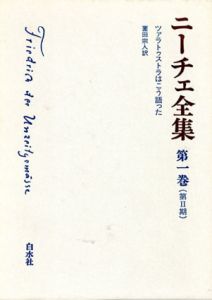 ニーチェ全集
第一巻(第Ⅱ期)
ツァラトゥストラはこう語った
薗田宗人訳
Friedrich der Unzeitgemässe
白水社